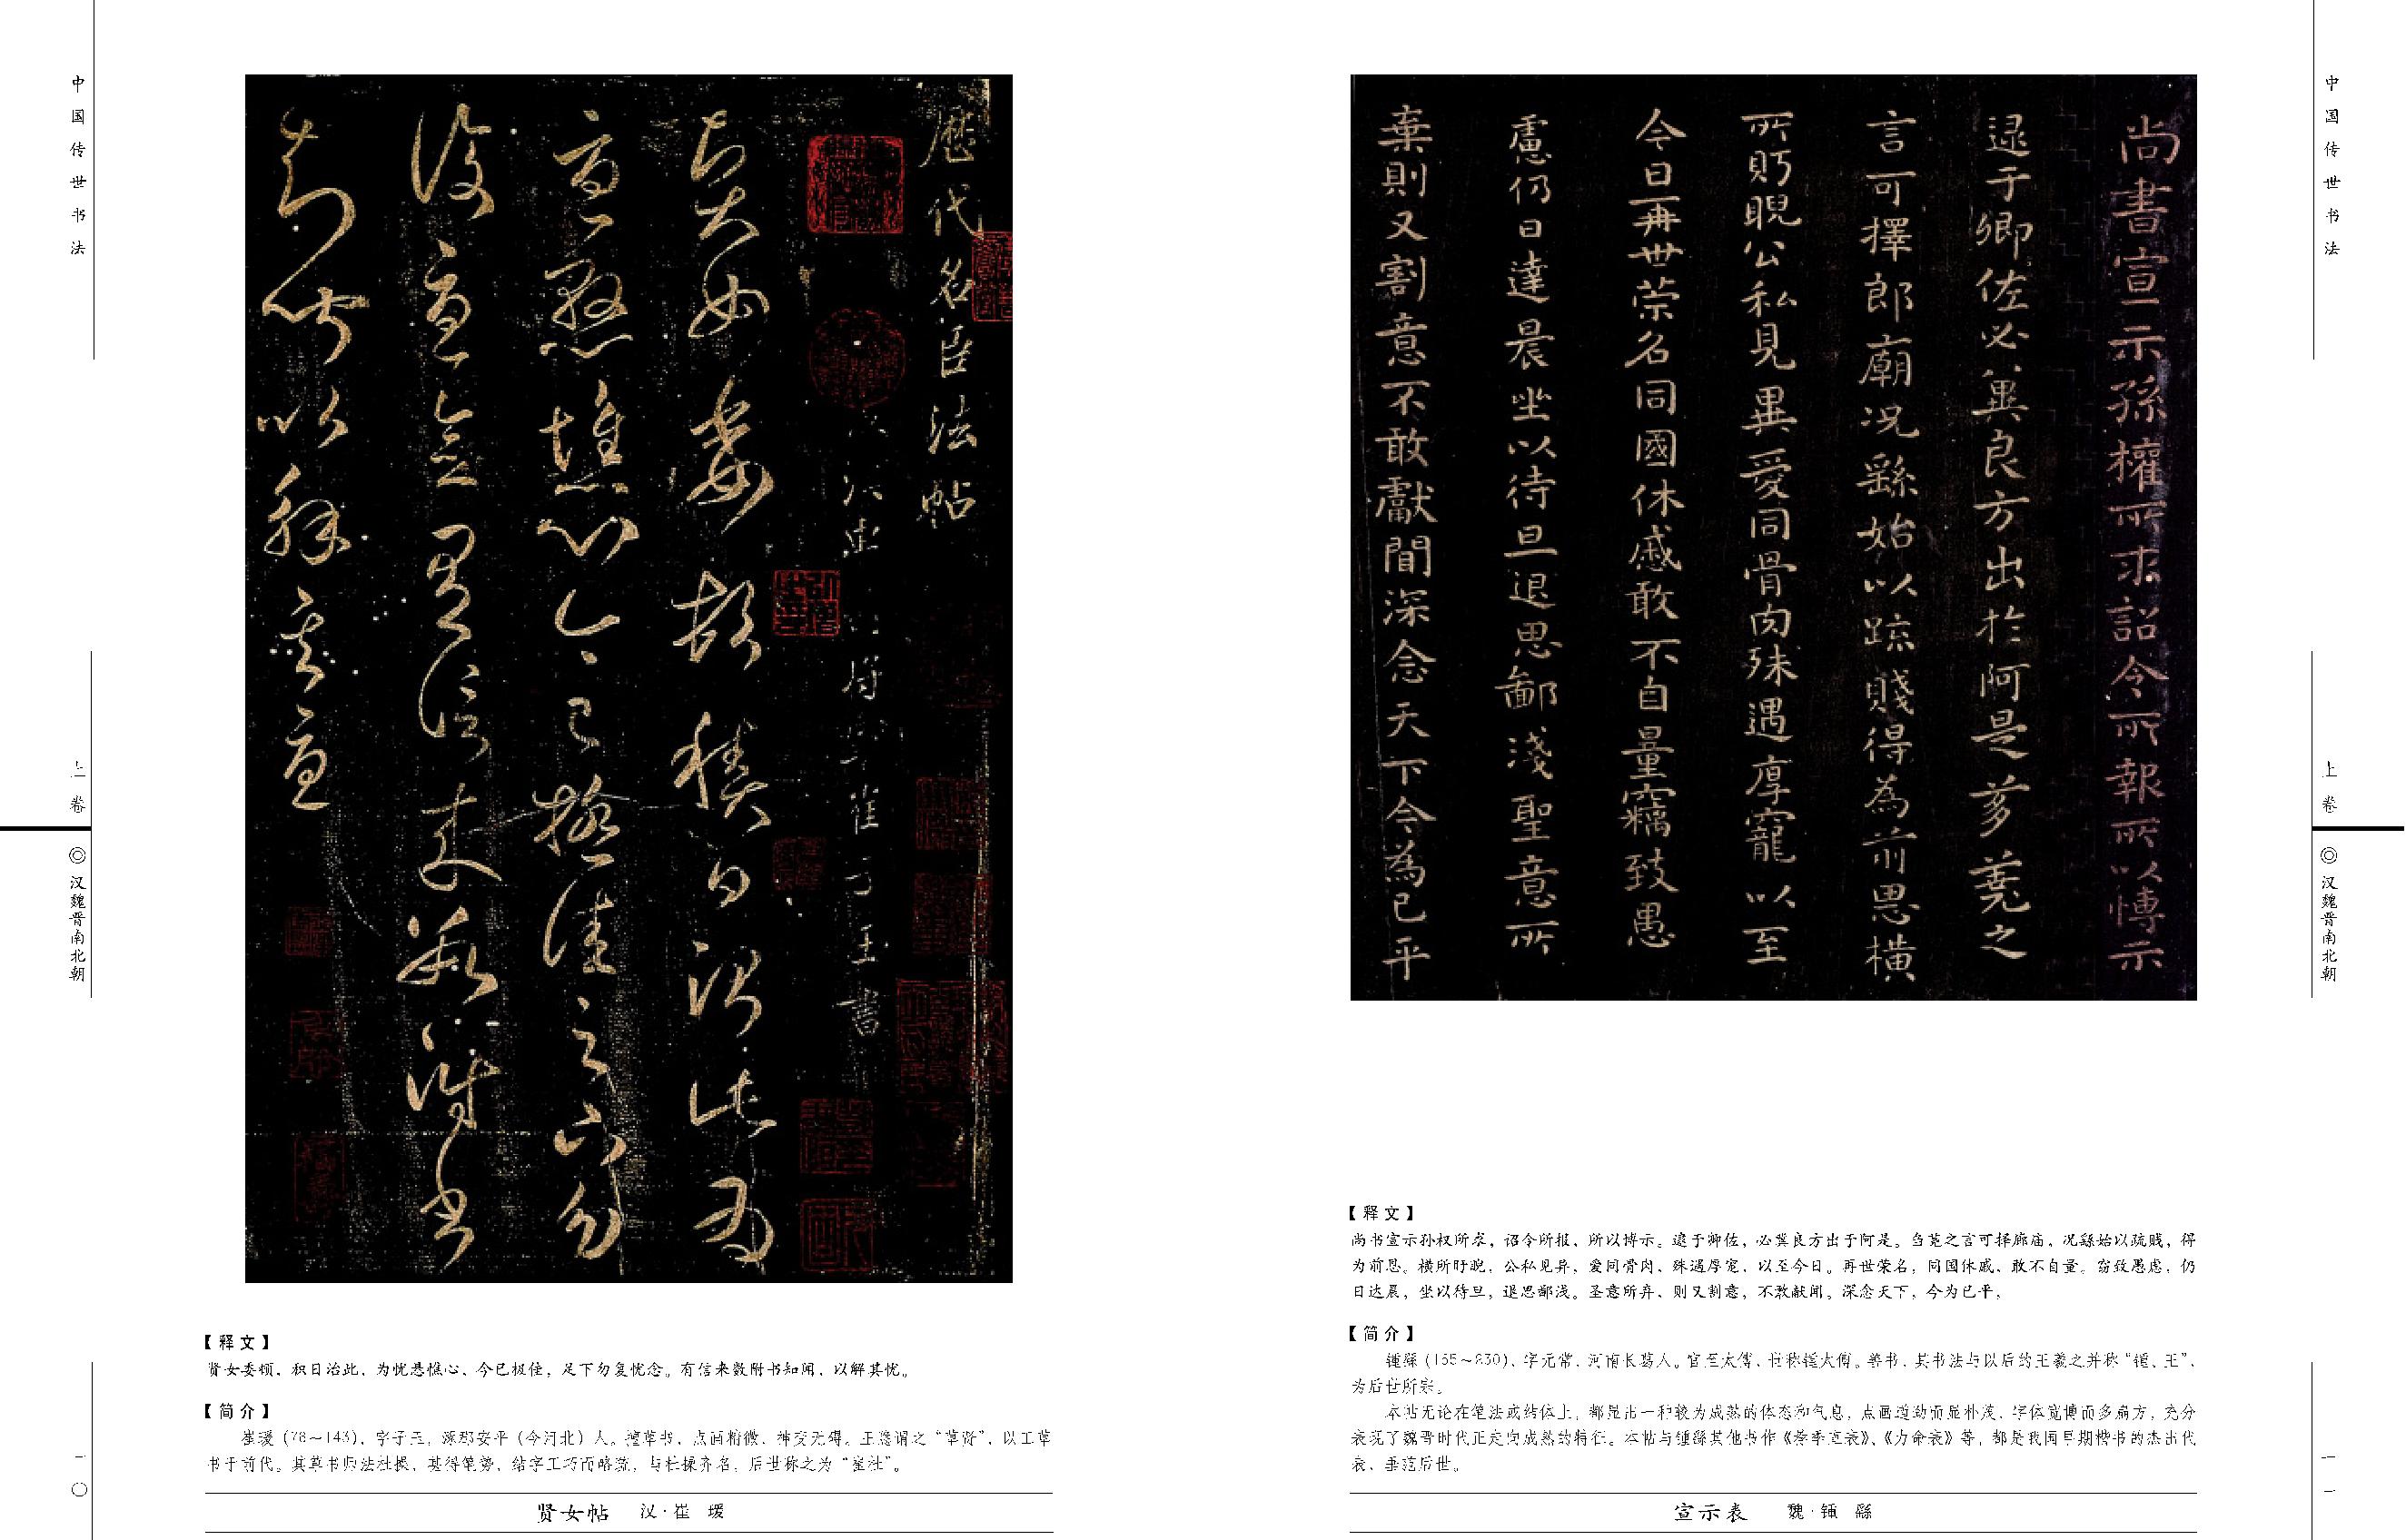 中国传世书法
上卷
◎汉魏晋南北朝
一〇
歷代名臣法帖
崔子玉書
賢女委頓積日治此為
憂懸憔心今已極佳足下勿
復憂念有信来數附書
知聞以解其憂
【释文】
贤女委顿，积日治此，为忧悬憔心，今已极佳，足下勿复忧念。有信来数附书知闻，以解其忧。
【简介】
崔瑗（78～143），字子玉，涿郡安平（今河北）人。擅草书，点画精微，神变无碍。王隐谓之“草贤”，以工草
书于前代。其草书师法杜操，甚得笔势，结字工巧而略疏，与杜操齐名，后世称之为“崔杜”。
贤女帖 汉·崔 瑗
尚書宣示孫權所求詔令所報所以博示
逮于卿佐必冀良方出於阿是芻蕘之
言可擇郎廟況繇始以疏賤得為前恩橫
所眄睨公私見異愛同骨肉殊遇厚寵以至
今日再世榮名同國休慼敢不自量竊致愚
慮仍日達晨坐以待旦退思鄙淺聖意所
棄則又割意不敢獻聞深念天下今為已平
【释文】
尚书宣示孙权所求，诏令所报，所以博示。逮于卿佐，必冀良方出于阿是。刍荛之言可择廊庙，况繇始以疏贱，得
为前恩。横所盱睨，公私见异，爱同骨肉，殊遇厚宠，以至今日。再世荣名，同国休戚，敢不自量。窃致愚虑，仍
日达晨，坐以待旦，退思鄙浅。圣意所弃，则又割意，不敢献闻。深念天下，今为已平，
【简介】
锺繇（155～230），字元常，河南长葛人。官至太傅，世称锺太傅。善书，其书法与以后的王羲之并称“锺、王”，
为后世所宗。
本帖无论在笔法或结体上，都显出一种较为成熟的体态和气息，点画遒劲而显朴茂，字体宽博而多扁方，充分
表现了魏晋时代正走向成熟的特征。本帖与锺繇其他书作《荐季直表》、《力命表》等，都是我国早期楷书的杰出代
表，垂范后世。
宣示表 魏·锺 繇
中国传世书法
上卷
◎汉魏晋南北朝
一一